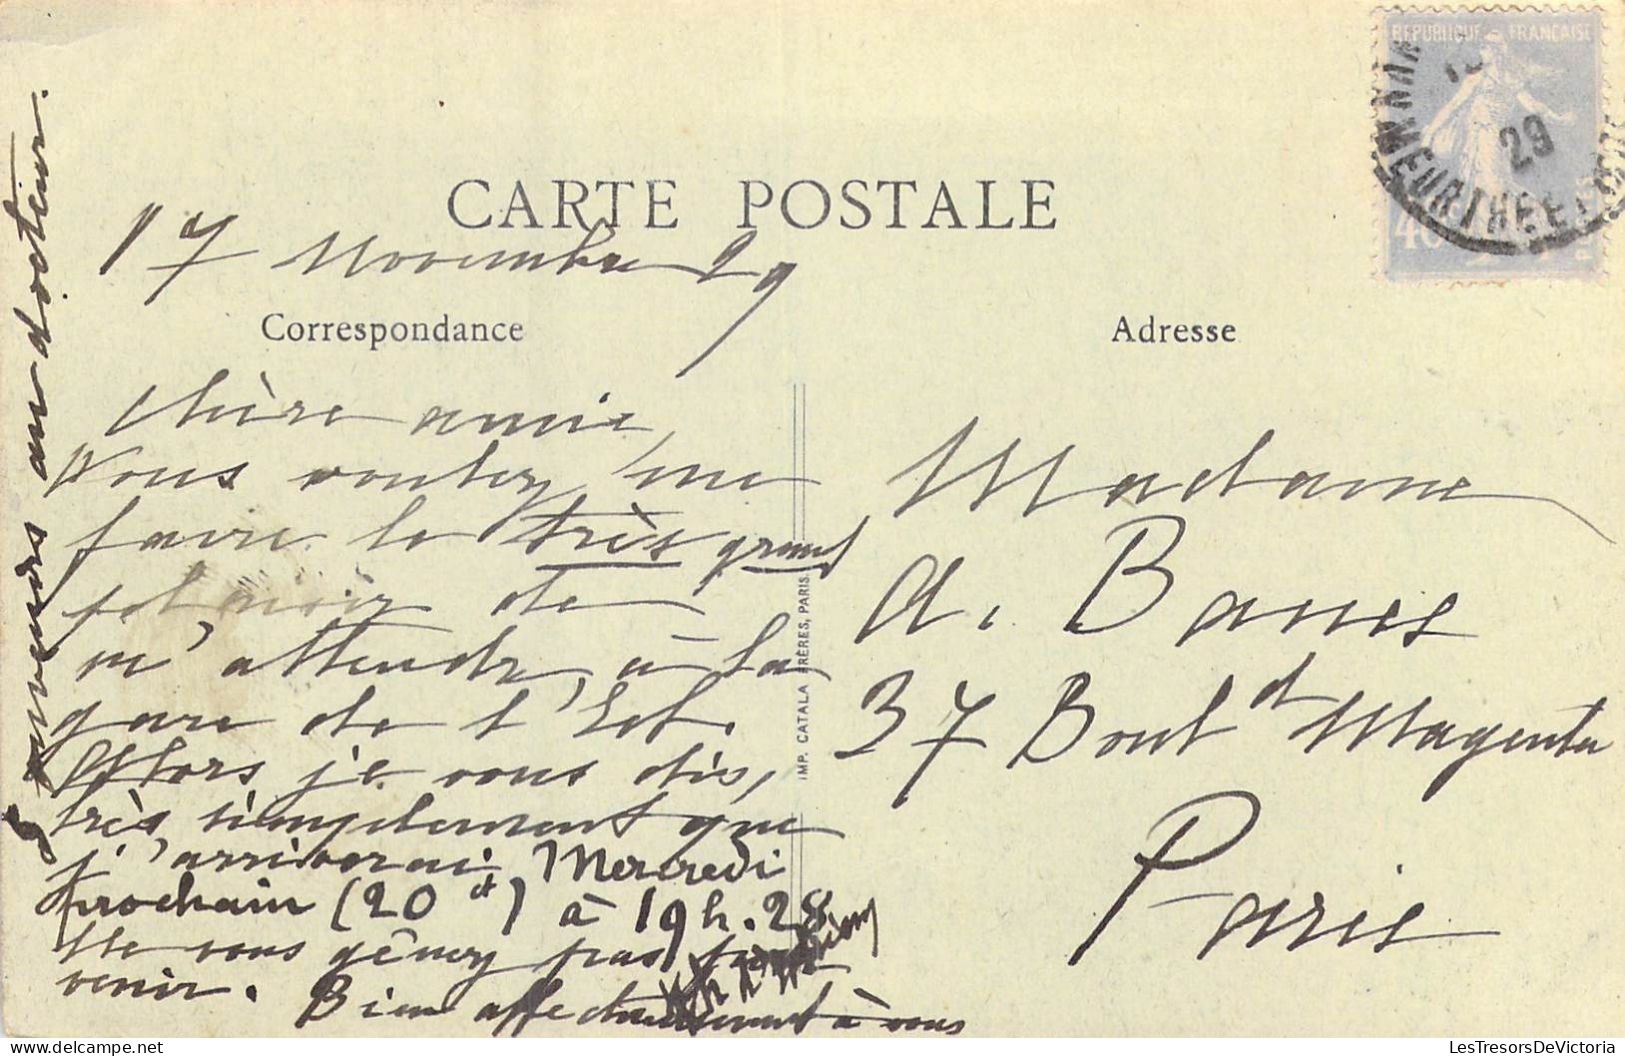 RÉPUBLIQUE FRANÇAISE
29
MEURTHE ET
40
CARTE POSTALE
17 Novembre 29
Correspondance
Adresse
Chère amie,
Vous voulez me
faire le très grand
plaisir de
m'attendre, à la
gare de l'Est.
Alors je vous dis,
très, simplement que
j'arriverai Mercredi
prochain (20 ct) à 19h.28
Ne vous gênez pas pour
venir.
Bien affectueusement à vous
souvenirs au docteur.
Madame
A. Banes
37 Boul d Magenta
Paris
IMP. CATALA FRÈRES, PARIS.
LesTresorsDeVictoria.com